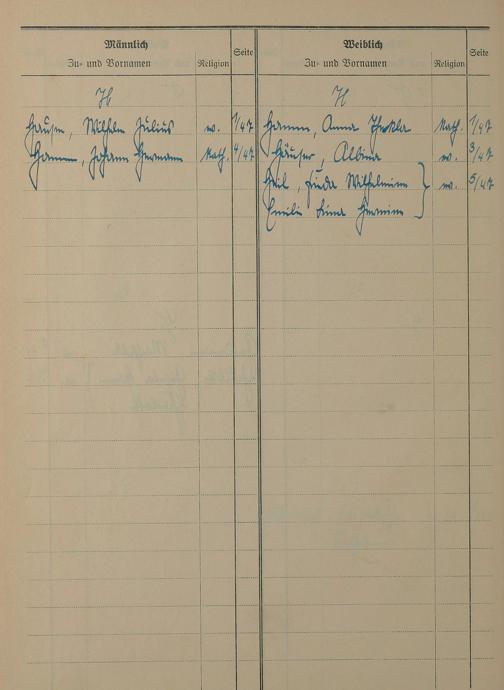 Männlich
Zu- und Vornamen Religion Seite
H
Hausen, Wilhelm Julius ev. 1/47
Hamm, Johann Hermann kath. 4/47
Weiblich
Zu- und Vornamen Religion Seite
H
Hamm, Anna Thekla kath. 1/47
Häuser, Albina ev. 3/47
Heil, Frieda Wilhelmine ev. 5/47
Emilie Lina Hermine